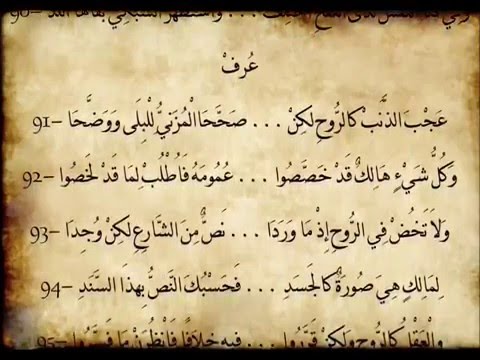 النفس لدى النفخ اختلف . . . واستظهر السبكي بقاها اللذ –90
عُرِفْ
عَجْبَ الذَّنَبْ كَالرُّوحِ لكِنْ . . . صَحَّحَا الْمُزَنِيُّ لِلْبِلَى وَوَضَّحَا –91
وَكُلُّ شَيْءٍ هَالِكٌ قَدْ خَصَّصُوا . . . عُمُومَهُ فَاطْلُبْ لِمَا قَدْ لَخَّصُوا –92
وَلاَ تَخُضْ فِي الرُّوحِ إذْ مَا وَرَدَا . . . نَصٌّ مِنَ الشَّارِعِ لكِنْ وُجِدَا –93
لِمَالِكٍ هِيَ صُورَةٌ كَالْجَسَدِ . . . فَحَسْبُكَ النَّصُّ بِهذَا السَّنَدِ –94
وَالْعَقْلُ كَالرُّوحِ وَلكِنْ قَرَّرُوا . . . فِيهِ خِلَافًا فَانْظُرَنْ مَا فَسَّرُوا –95